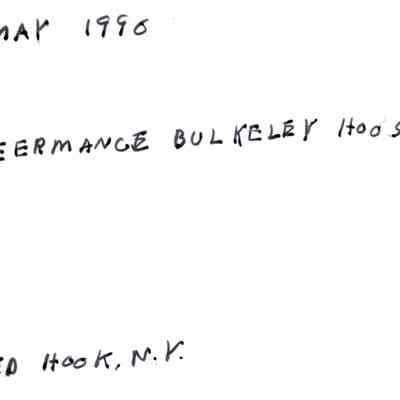 MAY 1996
EERMANCE BULKELEY HOOS
ED HOOK, N.Y.